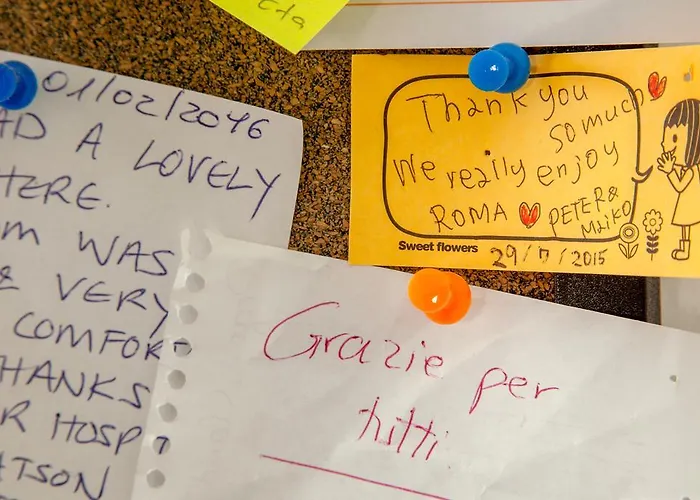 01/02/2016
AD A LOVELY
HERE.
M WAS
& VERY
COMFORT
THANKS
R HOSP
ATSON
Thank you
so much
We really enjoy
ROMA PETER &
MAIKO
Sweet flowers
29/7/2015
Grazie per
tutti